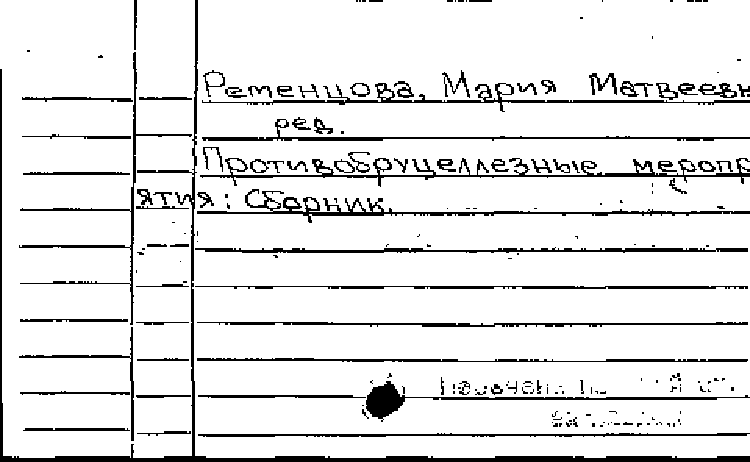 Ременцова, Мария Матвеевн
рев.
Противобруцеллезные меропр
ятия: Сборник.